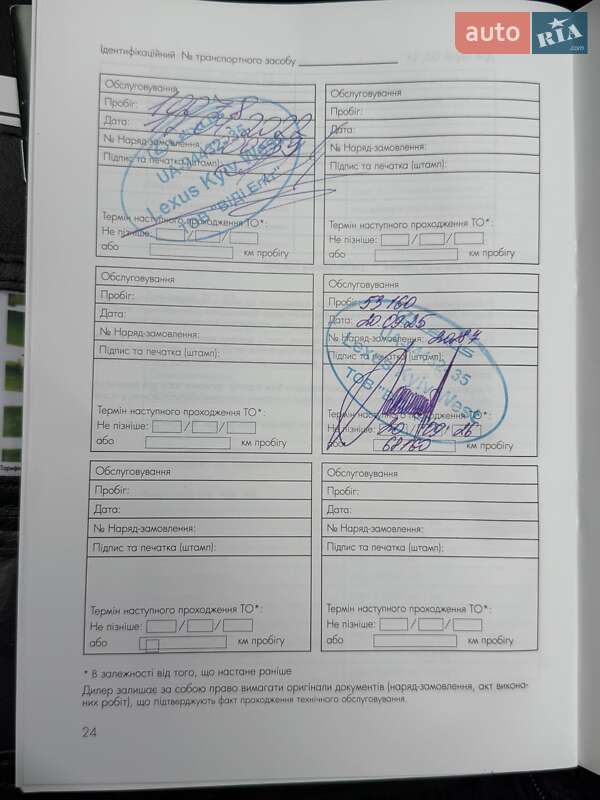 auto RIA .com
Ідентифікаційний № транспортного засобу
Обслуговування
Пробіг:
Дата:
№ Наряд-замовлення:
Підпис та печатка (штамп):
Lexus Kyiv West
Термін наступного проходження ТО*:
Не пізніше: / /
або км пробігу
Обслуговування
Пробіг:
Дата:
№ Наряд-замовлення:
Підпис та печатка (штамп):
Термін наступного проходження ТО*:
Не пізніше: / /
або км пробігу
Обслуговування
Пробіг:
Дата:
№ Наряд-замовлення:
Підпис та печатка (штамп):
Термін наступного проходження ТО*:
Не пізніше: / /
або км пробігу
Обслуговування
Пробіг: 53160
Дата: 20.09.25
№ Наряд-замовлення:
Підпис та печатка (штамп):
Lexus Kyiv West
Термін наступного проходження ТО*:
Не пізніше: 20 / 09 / 26
або 68160 км пробігу
Обслуговування
Пробіг:
Дата:
№ Наряд-замовлення:
Підпис та печатка (штамп):
Термін наступного проходження ТО*:
Не пізніше: / /
або км пробігу
Обслуговування
Пробіг:
Дата:
№ Наряд-замовлення:
Підпис та печатка (штамп):
Термін наступного проходження ТО*:
Не пізніше: / /
або км пробігу
* В залежності від того, що настане раніше
Дилер залишає за собою право вимагати оригінали документів (наряд-замовлення, акт викона-
них робіт), що підтверджують факт проходження технічного обслуговування.
24